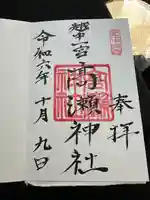 奉拝
越中一宮高瀬神社
令和六年十月九日